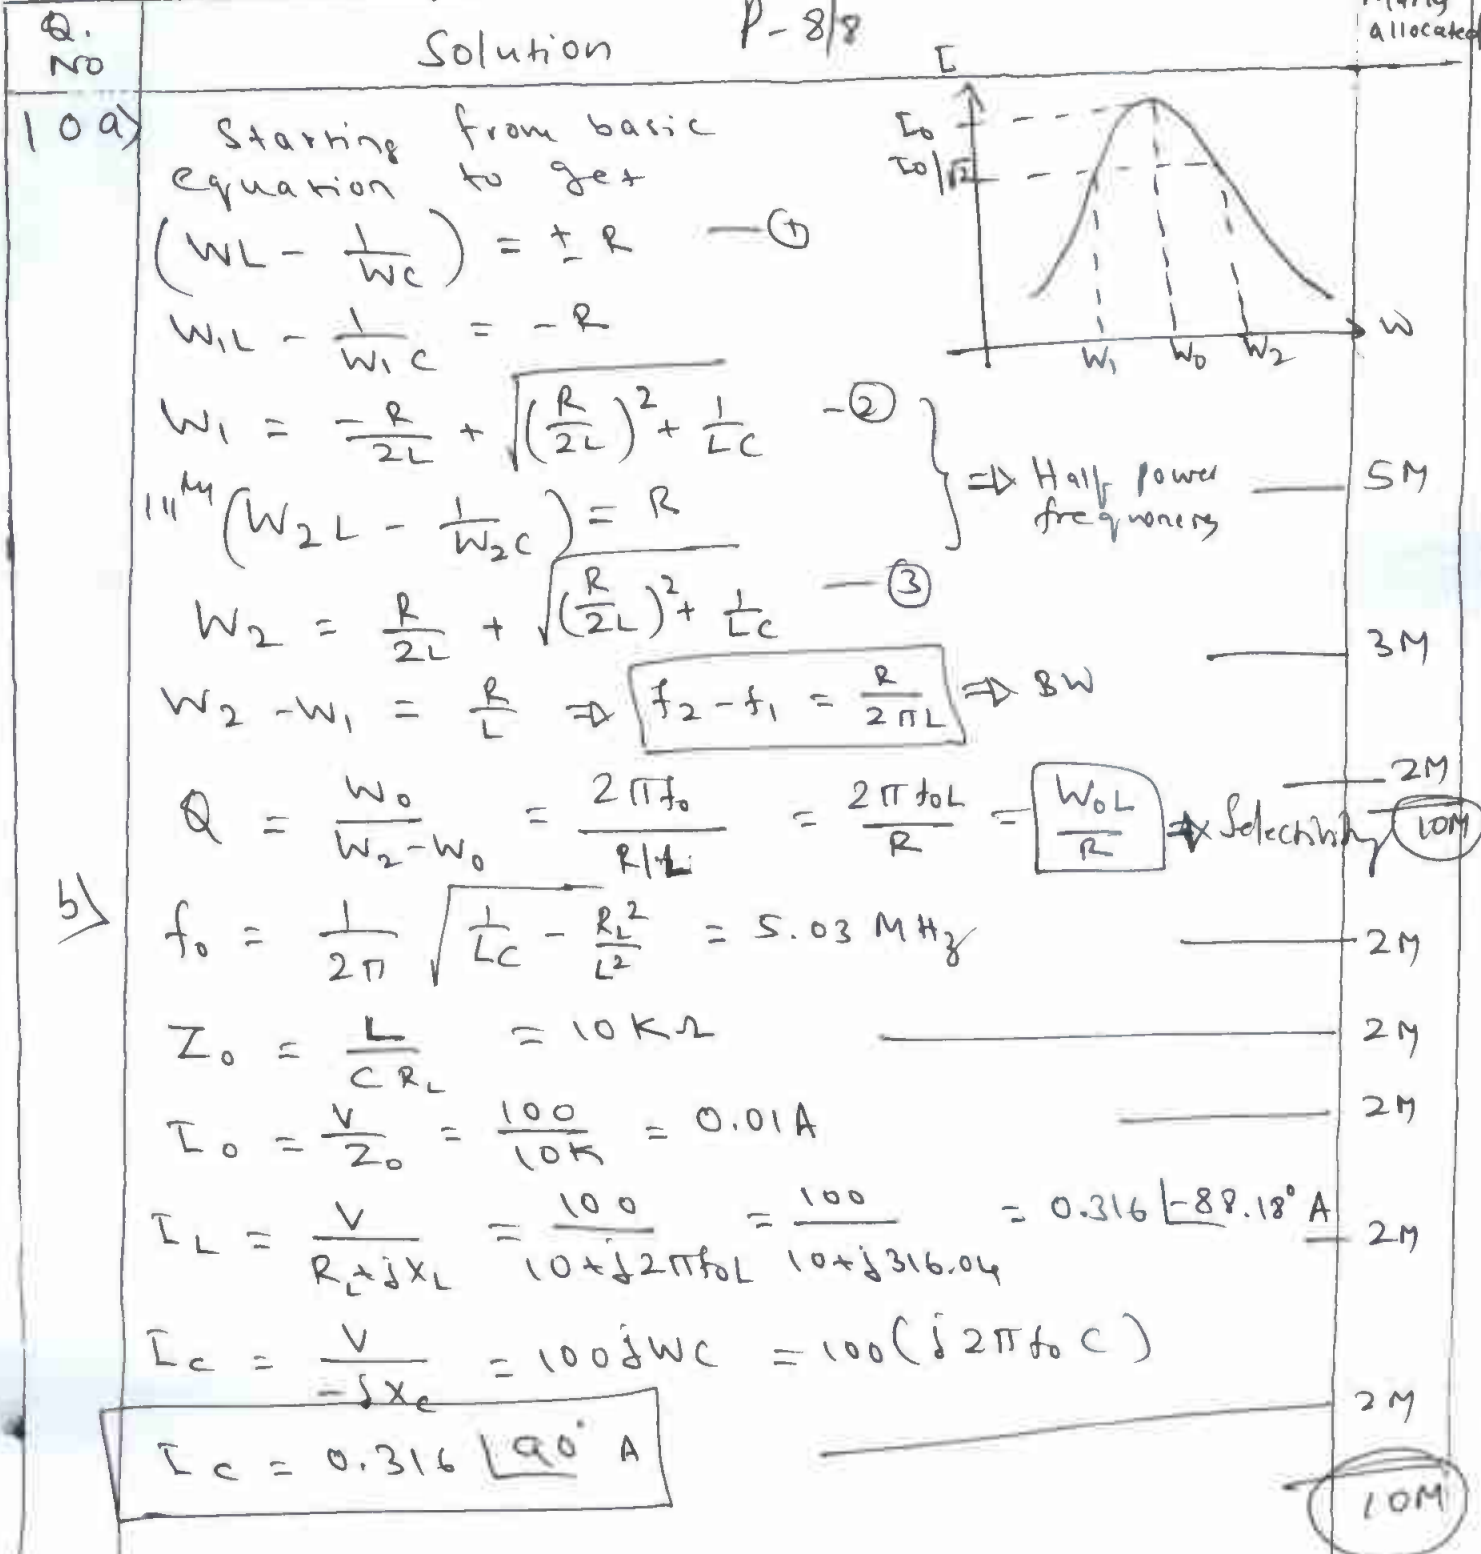 Q. No
Solution
P-8/8
allocated
10 a)
Starting from basic
equation to get
(WL - 1/WC) = ± R — ①
W₁L - 1/W₁C = - R
W₁ = -R/2L + √((R/2L)² + 1/LC) - ②
|||ly (W₂L - 1/W₂C) = R
⇒ Half power
5M
W₂ = R/2L + √((R/2L)² + 1/LC) — ③
3M
W₂ - W₁ = R/L ⇒ f₂ - f₁ = R/2πL ⇒ BW
2M
Q = W₀/W₂-W₀ = 2πf₀/R/L = 2πf₀L/R = W₀L/R ⇒ Selectivity
10M
I
I₀
I₀/√2
W₁ W₀ W₂
W
b)
f₀ = 1/2π √(1/LC - R_L²/L²) = 5.03 MHz
2M
Z₀ = L/CR_L = 10KΩ
2M
I₀ = V/Z₀ = 100/10K = 0.01A
2M
I_L = V/R_L+jX_L = 100/10+j2πf₀L = 100/10+j316.04 = 0.316 ∠-88.18° A
2M
I_c = V/-jX_c = 100jWC = 100(j2πf₀C)
2M
I_c = 0.316 ∠90° A
10M